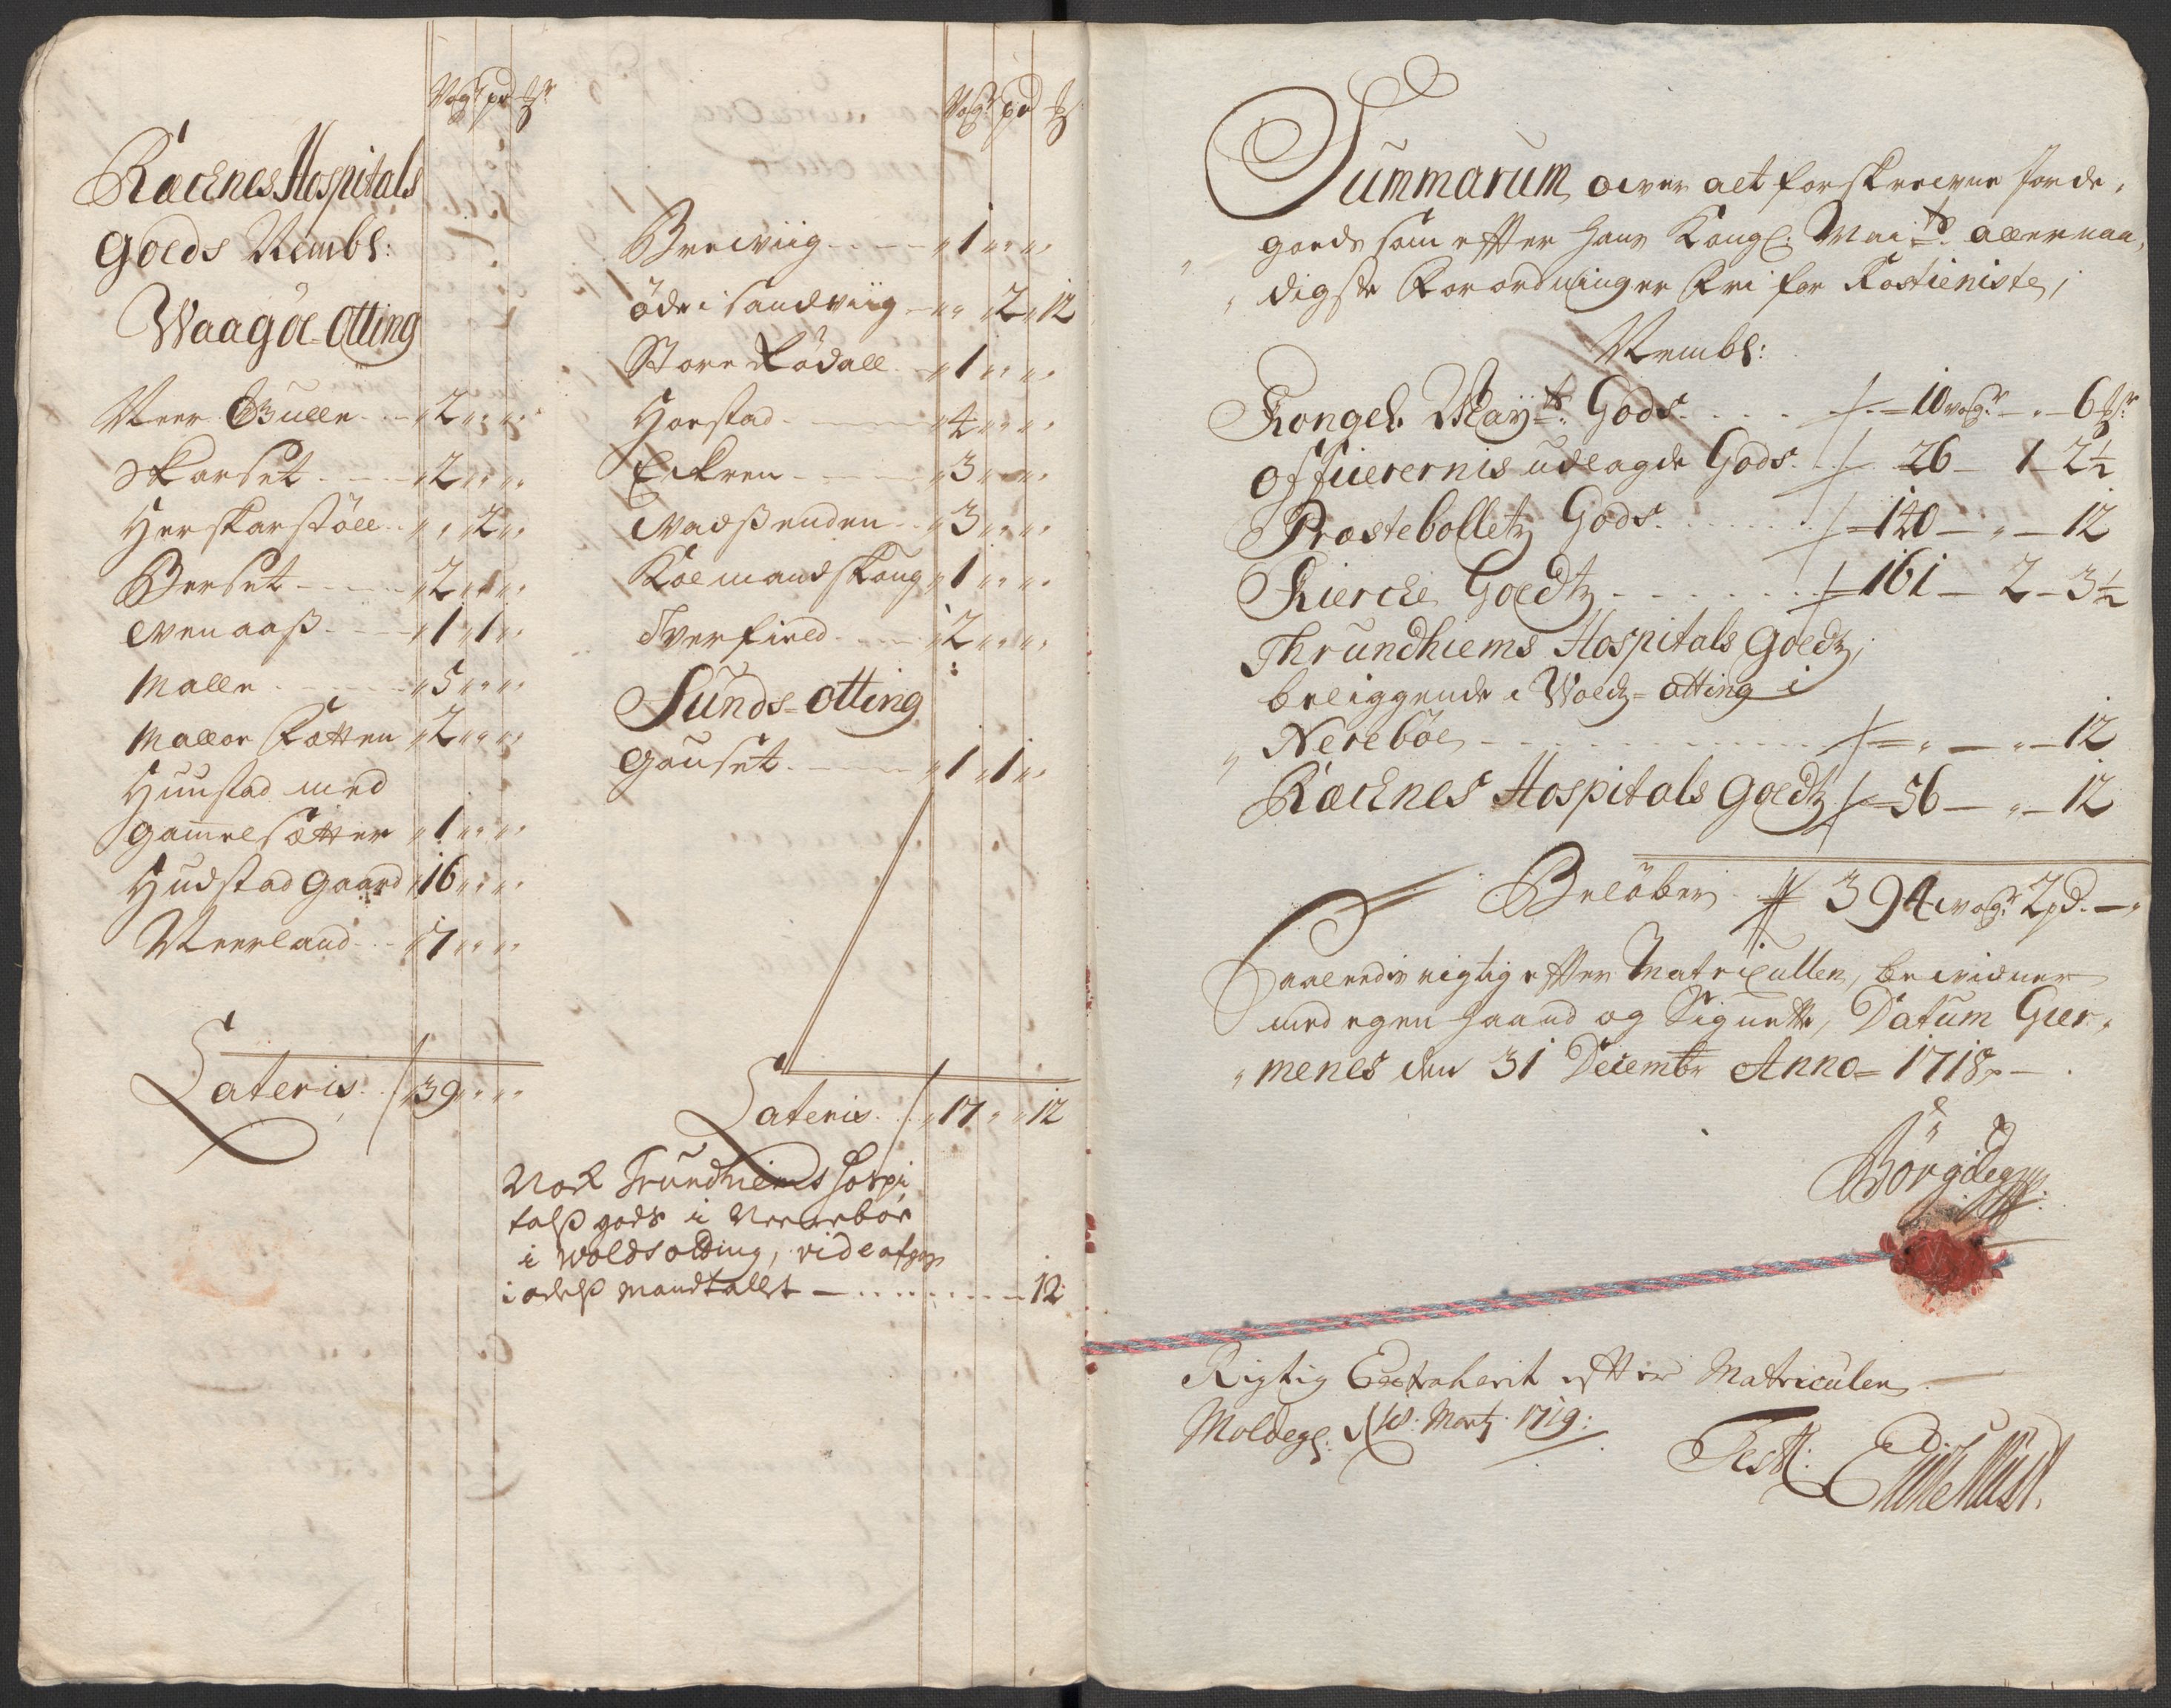 Wogr pd ℔r
Racknes Hospitals
Goeds Nembl:
Waagöe-Otting
Neer Gulle - - " 2 " " "
Skarset - - - " 2 " " "
Herskarstöll - " " 2 " "
Berset - - - " 2 " 1 " "
Evenaaß - - - " 1 " 1 " "
Malle - - - " 5 " " "
Malloe Fotten " 2 " " "
Huustad med
Gammelsötter " 1 " " "
Hudstad Gaard " 16 " " "
Neerland - - " 7 " " "
Lateris / " 39 " " "
Wogr pd ℔
Breiviig - - - " 1 " " "
öde i Sandviig - " " 2 " 12
Store Rödall - " 1 " " "
Horstad - - - " 4 " " "
Eckren - - - " 3 " " "
Wadßenden - - " 3 " " "
Kolmandskoug " 1 " " "
Tverfield - - " 2 " " "
Sunds-Otting
Gauset - - - " 1 " 1 "
Lateris / " 17 " " 12
Nock Trundhiems Hospi
talß gods i Neereböe
i Woldsotting,
i odelß Mandtallet - - - 12
Summarum over alt forskrevne Jorde-
goeds som efter Hans Kongl: Mai:ts allernaa-
digste Forordninger Fri for Rostieniste,
Nembl:
Kongel. Mayts: Gods - - - /- 10 wogr - " - 6 ℔r
Officerernis udlagde Gods - /- 26 - 1 - 2½
Præstebolletz Gods - - - /- 140 - " - 12
Kierche Goedtz - - - /- 161 - 2 - 3½
Thrundhiems Hospitals Goedtz,
beliggende i Woldtz-Otting i
Nerebôe - - - /- " - " - 12
Racknes Hospitals Goedtz /- 56 - " - 12
Belöber 394 wogr 2 pd - "
Saaledis rigtig efter Matricullen, bevidner
med egen Haand og Signette, Datum Gier-
menes den 31 Decembr Anno 1718
Rigtig Extraherit efter Matriculen
Moldegl: d 18. Martj 1719:
Test: